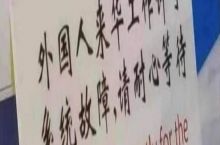 外国人来华工作许可
系统故障,请耐心等待
for the